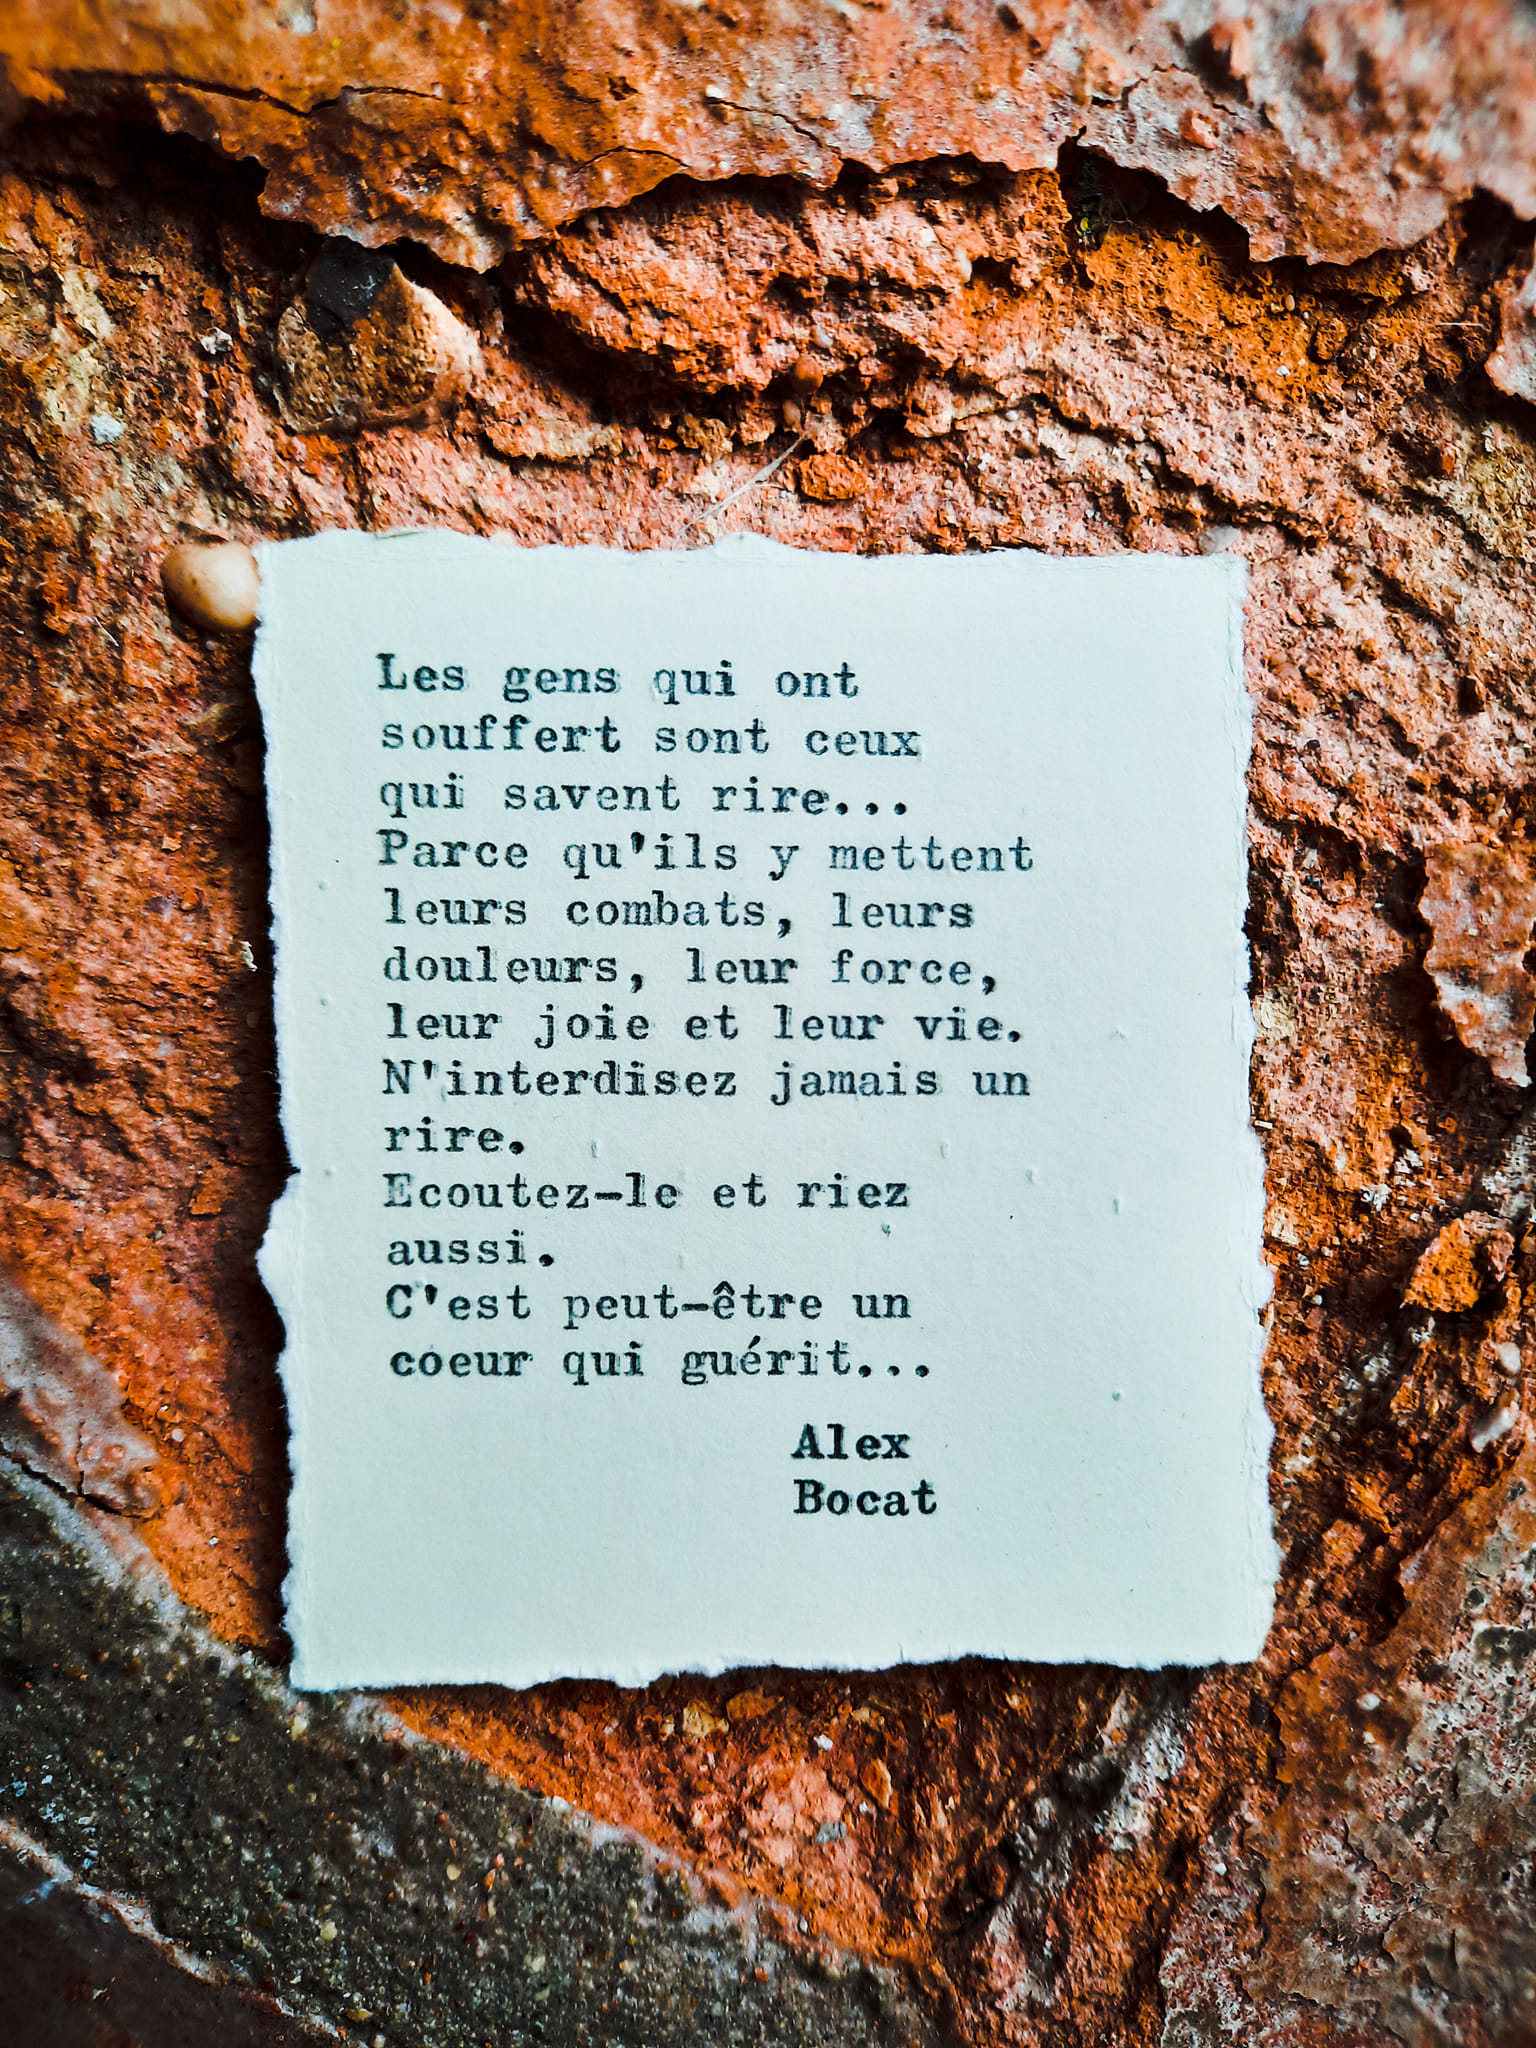 Les gens qui ont
souffert sont ceux
qui savent rire...
Parce qu'ils y mettent
leurs combats, leurs
douleurs, leur force,
leur joie et leur vie.
N'interdisez jamais un
rire.
Ecoutez-le et riez
aussi.
C'est peut-être un
coeur qui guérit...
Alex
Bocat